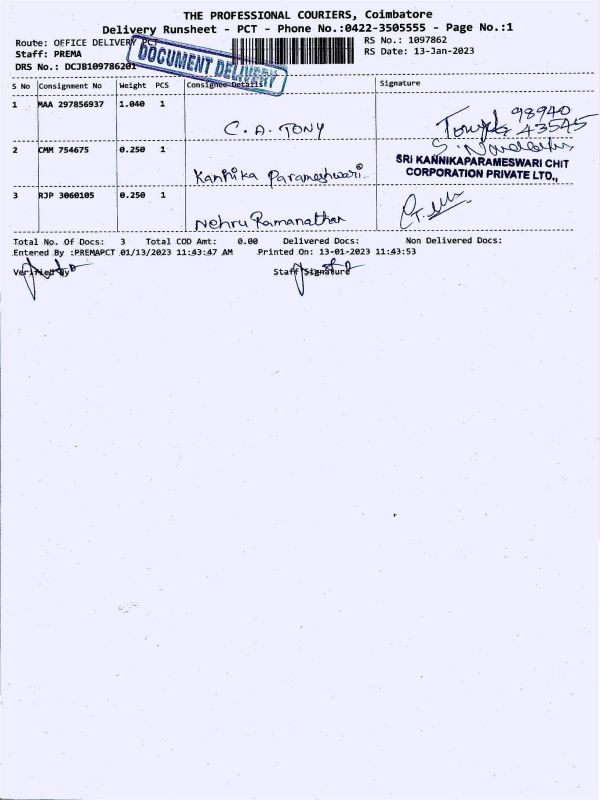 THE PROFESSIONAL COURIERS, Coimbatore
Delivery Runsheet - PCT - Phone No.:0422-3505555 - Page No.:1
Route: OFFICE DELIVERY PCT
RS No.: 1097862
Staff: PREMA
RS Date: 13-Jan-2023
DRS No.: DCJB109786201
DOCUMENT DELIVERY
S No Consignment No Weight PCS Consignee Details Signature
1 MAA 297856937 1.040 1
98940
C. A. TONY
43545
2 CMM 754675 0.250 1
SRI KANNIKAPARAMESWARI CHIT
CORPORATION PRIVATE LTD.,
Kannika Parameshwari
3 RJP 3060105 0.250 1
Nehru Ramanathan
Total No. Of Docs: 3 Total COD Amt: 0.00 Delivered Docs: Non Delivered Docs:
Entered By :PREMAPCT 01/13/2023 11:43:47 AM Printed On: 13-01-2023 11:43:53
Verified By Staff Signature